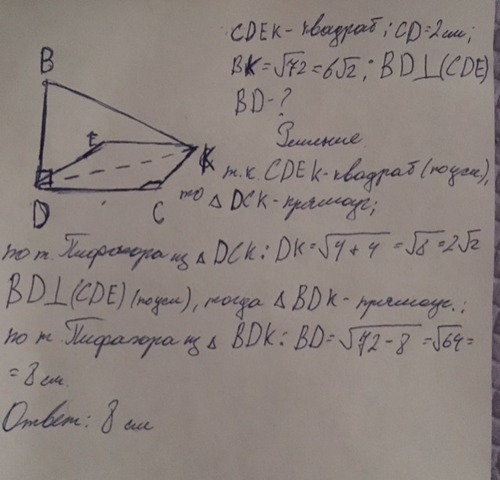 CDEK-квадрат; CD=2см;
BK=√72=6√2; BD⊥(CDE)
BD-?
Решение.
т.к. CDEK-квадрат (по усл),
то △DCK-прямоуг;
B
E
K
D
C
по т. Пифагора из △DCK: DK=√4+4=√8=2√2
BD⊥(CDE) (по усл), тогда △BDK-прямоуг.;
по т. Пифагора из △BDK: BD=√72-8=√64=
=8см.
Ответ: 8 см